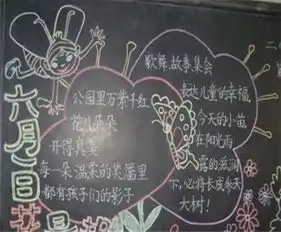 六月一日花
公园里万紫千红
花儿朵朵
开得真美
每一朵温柔的笑厣里
都有孩子们的影子
歌舞、故事、集会
表达儿童的幸福
今天的小苗
在阳光雨
露的滋润
下,必将长成参天
大树!